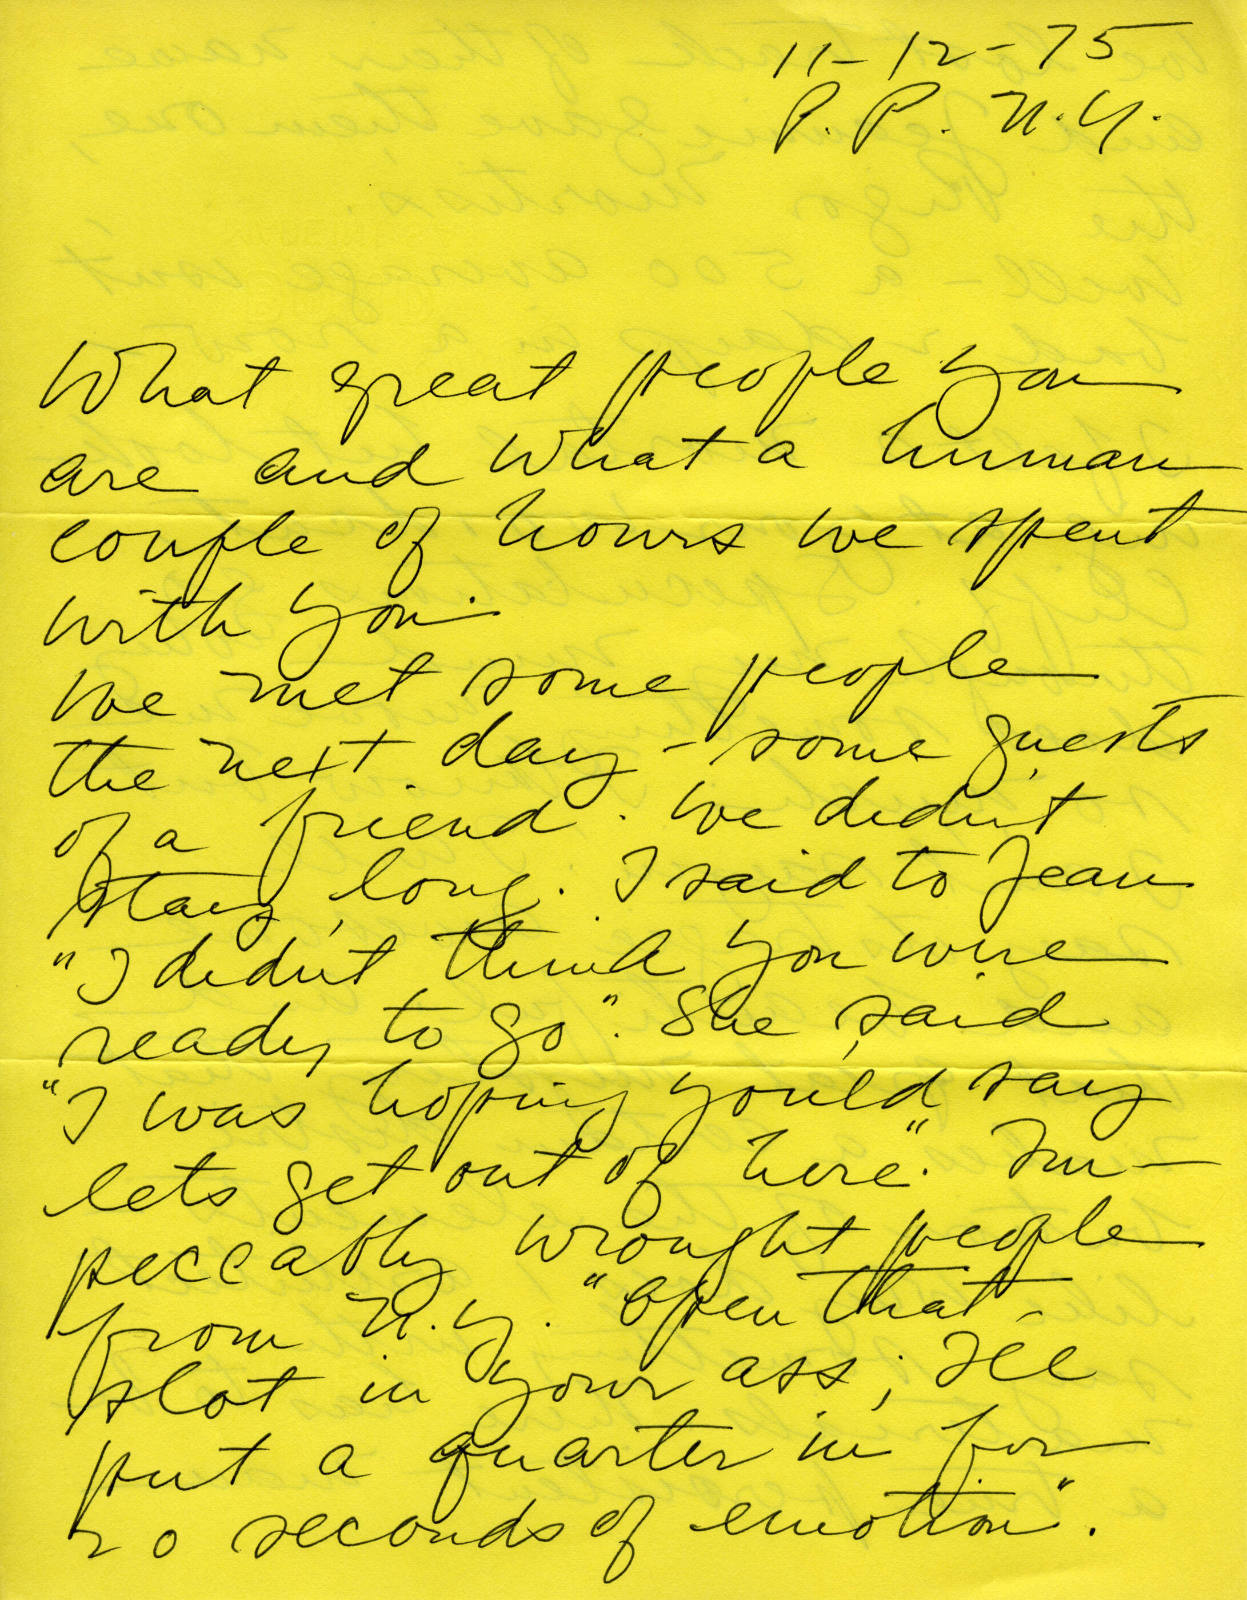 11-12-75
P.P. N.Y.
What great people you
are and what a human
couple of hours we spent
with you.
We met some people
the next day - some guests
of a friend. We didn't
stay long. I said to Jean
"I didn't think you were
ready to go". She said
"I was hoping you'ld say
lets get out of here." Im-
peccably wrought people
from N.Y. "Open that
slot in your ass; I'll
put a quarter in for
20 seconds of emotion".